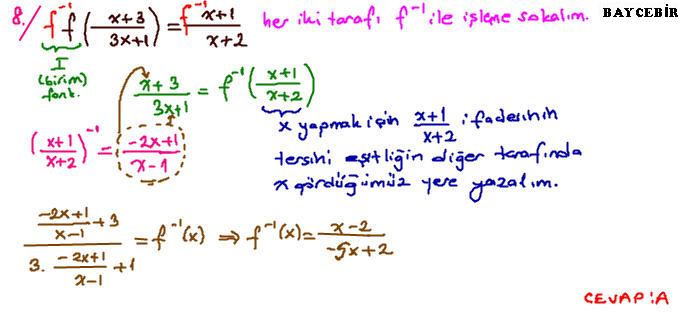 8./ f⁻¹f((x+3)/(3x+1)) = f⁻¹ (x+1)/(x+2) her iki tarafı f⁻¹ ile işleme sokalım. BAYCEBİR
I
(birim)
fonk.
(x+3)/(3x+1) = f⁻¹((x+1)/(x+2))
x yapmak için (x+1)/(x+2) ifadesinin
((x+1)/(x+2))⁻¹ = (-2x+1)/(x-1)
tersini eşitliğin diğer tarafında
x gördüğümüz yere yazalım.
((-2x+1)/(x-1) + 3)/(3. (-2x+1)/(x-1) + 1) = f⁻¹(x) ⇒ f⁻¹(x) = (x-2)/(-5x+2)
CEVAP:A